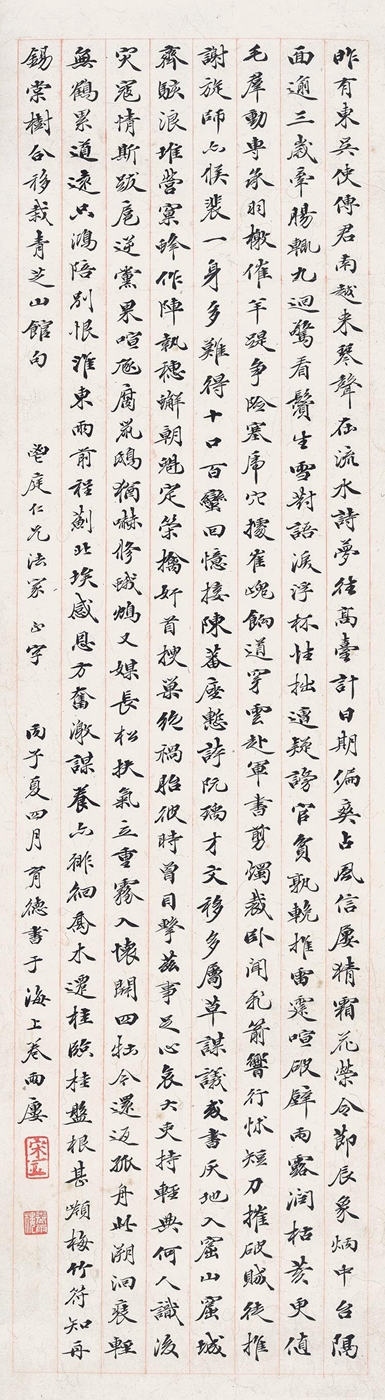 昨有東吳使傳君南越來琴聲在流水詩夢往高臺計日期偏爽占風信屢猜霜花縈令節辰象炳中台隅
面逾三歲牽腸輒九迴驚看鬢生雪對語淚浮杯性拙遭疑謗官貧孰輓推雷霆喧破壁雨露潤枯荄更值
毛羣動專承羽檄催竿提爭險塞虎穴擾崔嵬餉道穿雲赴軍書剪燭裁臥聞飛箭響行怵短刀摧破賊徒推
謝旋師亦俟裴一身多難得十口百蠻回憶接陳蕃座慙許阮瑀才文移多屬草謀議或書灰地入窟山窟城
齊駭浪堆營窠蜂作陣執穗蠏朝魁定策擒奸首搜巢絕禍胎彼時曾目擊茲事足心哀大吏持輕典何人識後
災寇情斯跋扈逆黨果喧豗腐鼠鴟猶嚇修蛾鴆又媒長松扶氣立重霧入懷開四牡令還返孤舟此溯洄裝輕
無鶴累道遠亦鴻陪別恨淮東雨前程薊北埃感恩方奮激謀養亦徘徊喬木遷桂臨桂盤根甚順梅竹符知再
錫棠樹合移栽青芝山館句 庭仁兄法家正字 丙子夏四月有德書于海上春雨廔